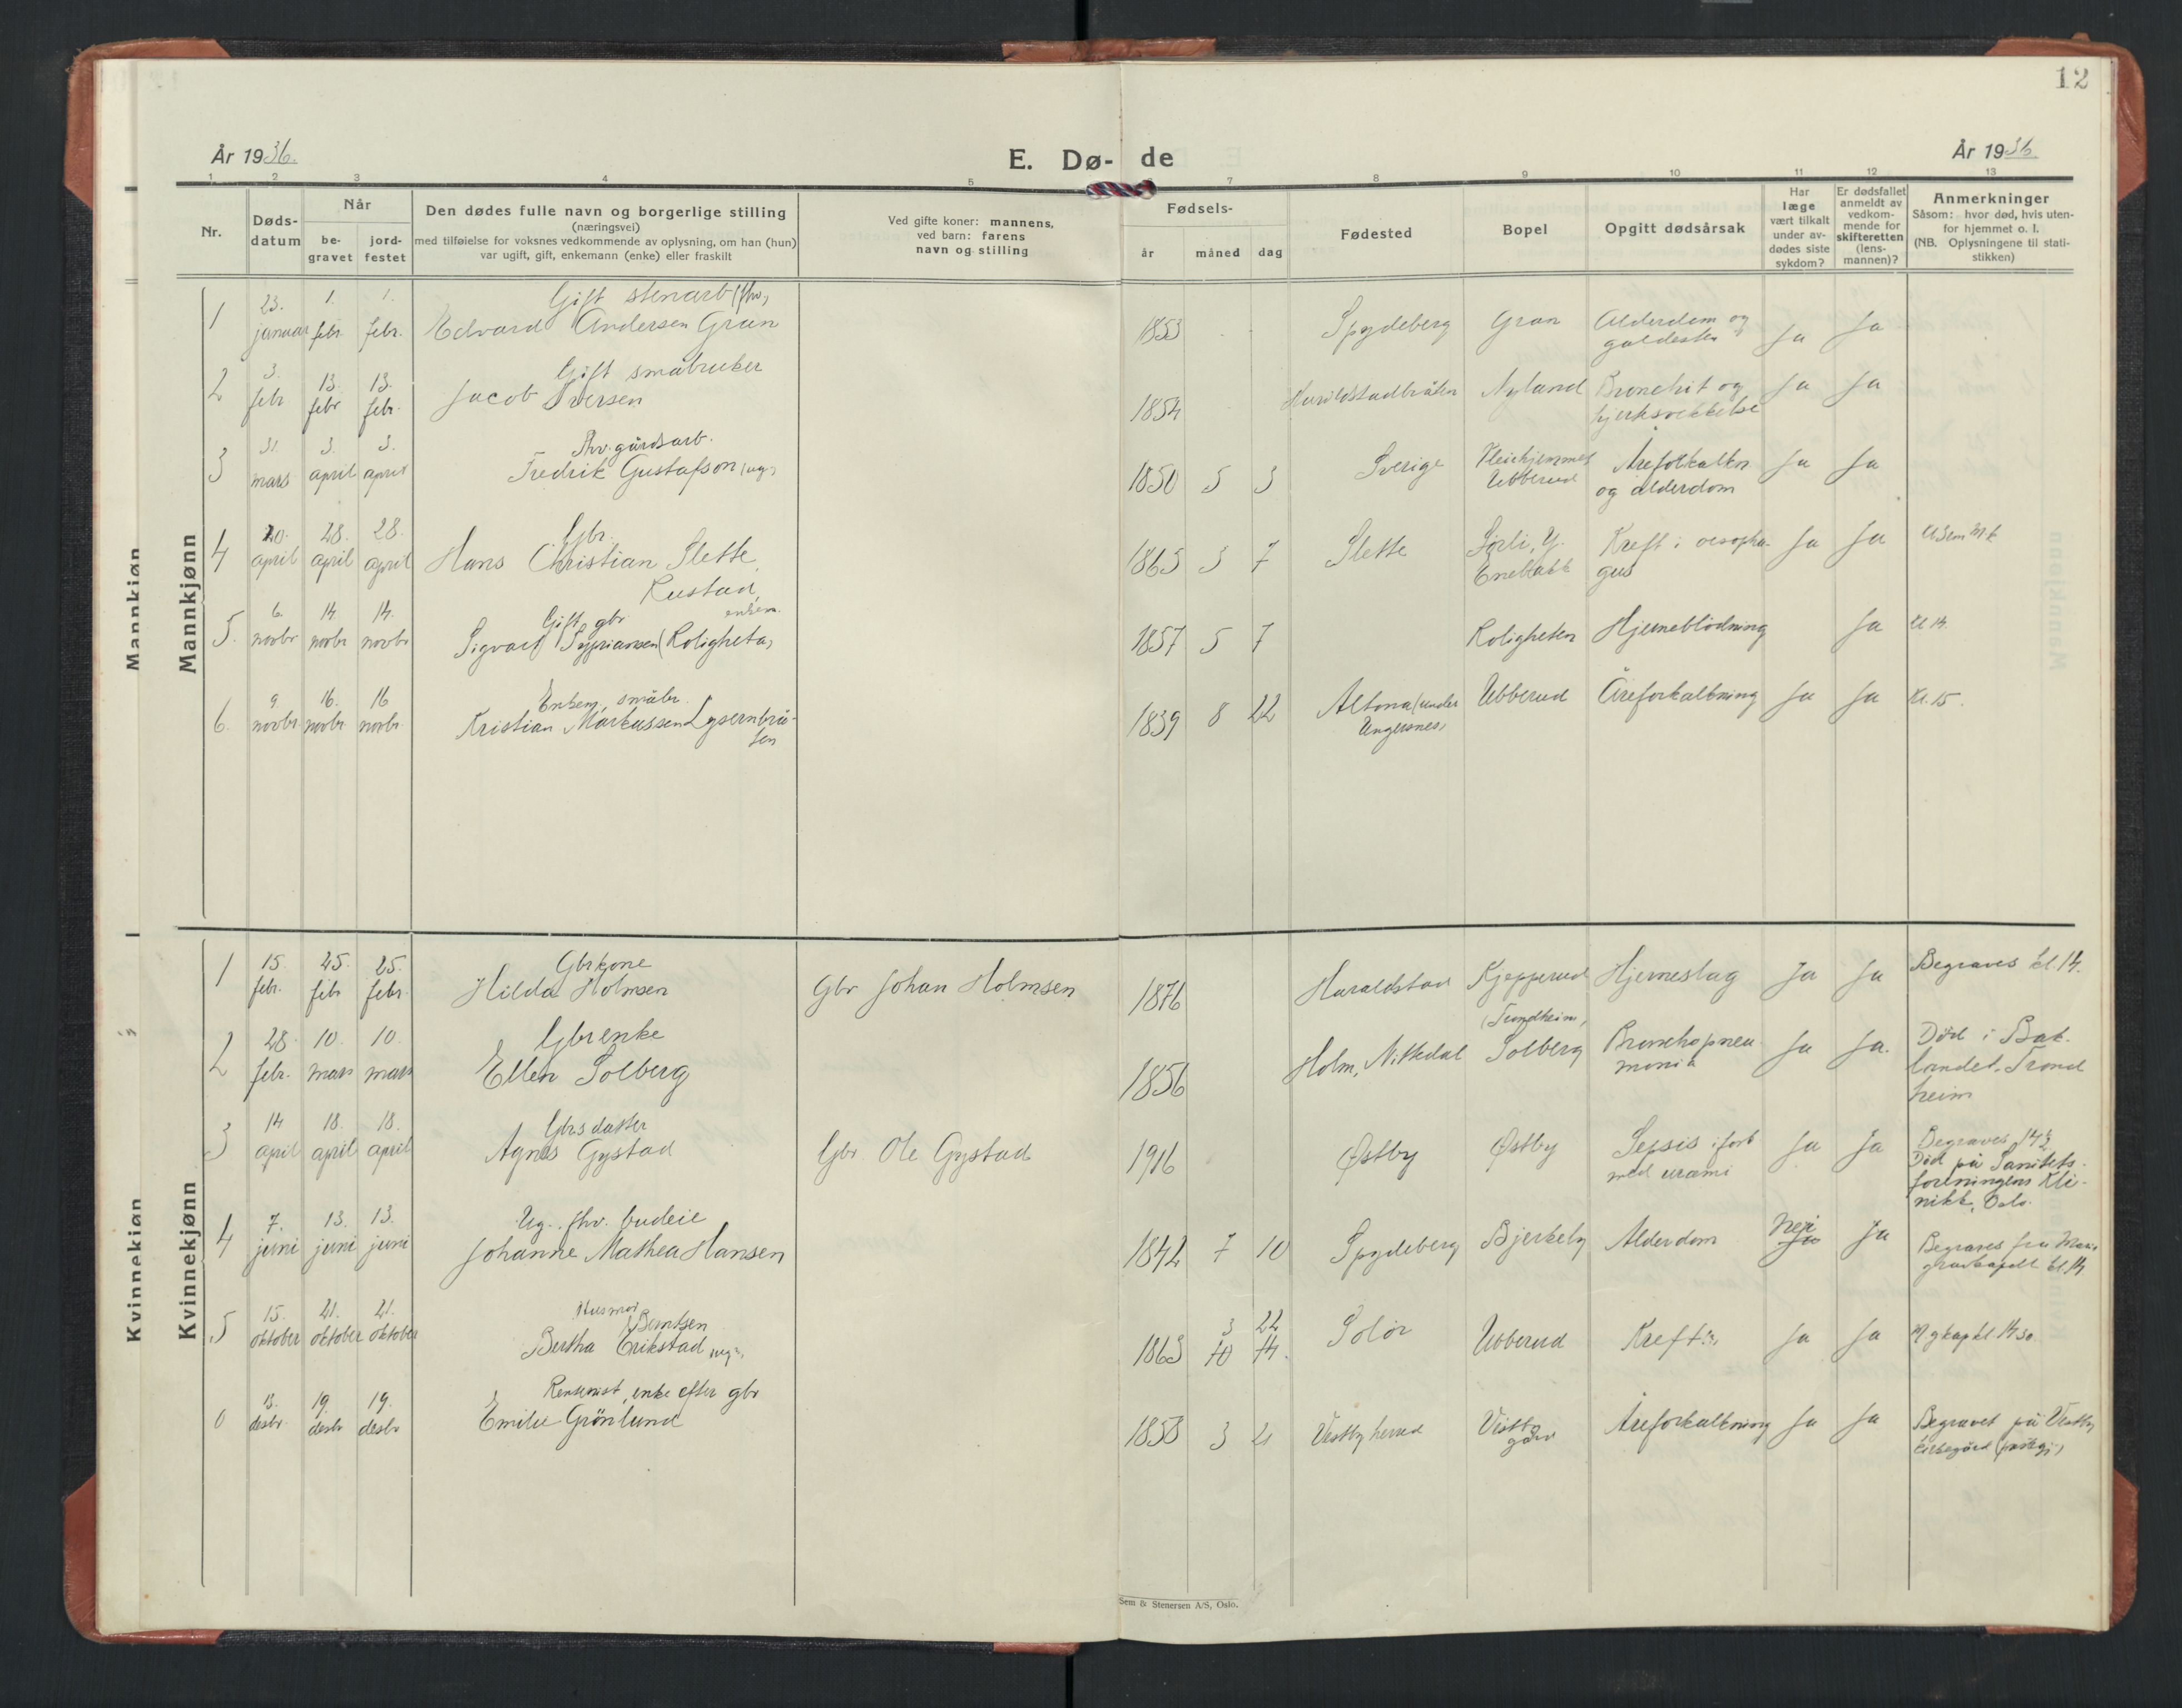 12
År 1936.
E. Dø- de
År 1936
1 2 3 4 5 7 8 9 10 11 12 13
Nr.
Døds-
datum
Når
be-
gravet
jord-
festet
Den dødes fulle navn og borgerlige stilling
(næringsvei)
med tilføielse for voksnes vedkommende av oplysning, om han (hun)
var ugift, gift, enkemann (enke) eller fraskilt
Ved gifte koner: mannens,
ved barn: farens
navn og stilling
Fødsels-
år måned dag
Fødested
Bopel
Opgitt dødsårsak
Har
læge
vært tilkalt
under av-
dødes siste
sykdom?
Er dødsfallet
anmeldt av
vedkom-
mende for
skifteretten
(lens-
mannen)?
Anmerkninger
Såsom: hvor død, hvis uten-
for hjemmet o. l.
(NB. Oplysningene til stati-
stikken)
Mannkjønn
Mannkjønn
23. 1. 1. Gift stenarb (fhv)
1 januar febr. febr. Edvard Andersen Gran 1853 Spydeberg Gran Alderdom og Ja Ja
galdesten
3. 13. 13. Gift småbruker
2 febr febr febr. Jacob Iversen 1854 Haraldstadbråten Nyland Bronchit og Ja Ja
hjertesvekkelse
31. 3. 3. Fhv. gårdsarb.
3 mars april april Fredrik Gustafson (ug.) 1850 5 3 Sverige Pleiehjemmet Åreforkalkn Ja Ja
Ubberud og alderdom
20. 28. 28. Gbr.
4 april april april Hans Christian Slette, 1863 3 7 Slette Sørli, Y. Kreft i oesopha- Ja Ja
Enebakk gus
Rustad,
enkem.
6. 14. 14. Gift, gbr
5. novbr novbr novbr Sigvart Syprianesen (Roligheten) 1857 5 7 Roligheten Hjerneblødning Ja Kl 14.
9. 16. 16 Enkem, småbr.
6. novbr novbr novbr. Kristian Markussen Lysernbrå- 1839 8 22 Altona (under Ubberud Åreforkalkning Ja Ja Kl. 15.
ten
Ungersnes)
Kvinnekjønn
Kvinnekjønn
15. 25. 25. Gbrkone
1 febr. febr febr. Hilda Holmsen Gbr Johan Holmsen 1876 Haraldstad Kjepperud Hjerneslag Ja Ja Begraves kl. 14.
28. 10. 10. Gbrenke (Trondheim)
2 febr. mars mars Ellen Solberg 1856 Holm, Nittedal Solberg Bronchopneu- Ja Ja. Død i Bak-
monia landet, Trond
heim
14 18. 18. Gbrs datter
3 april april april Agnes Gystad Gbr. Ole Gystad 1916 Østby Østby Sepsis i forb Ja Ja Begraves 14½
med uræmi Død på Sanitets-
foreningens Kli-
nikk, Oslo.
7. 13. 13. Ug. fhv. budeie
4 juni juni juni Johanne Mathea Hansen 1842 7 10 Spydeberg Bjerkely Alderdom Nei Ja Ja Begraves fra Mari
gravkapell kl. 14
15. 21. 21. Husmor
5 oktober oktober oktober Berntsen
Bertha Erikstad (ug.) 1863 3 22 10 14. Solør Ubberud Kreft Ja Ja M gkap kl. 14 30
13. 19. 19. Rentenist, enke efter gbr
desbr. desbr desbr Emilie Grönlund 1858 3 21 Vestby herred Vestby Åreforkalkning Ja Ja Begravet på Vestby
gård kirkegård
Sem & Stenersen A/S, Oslo.